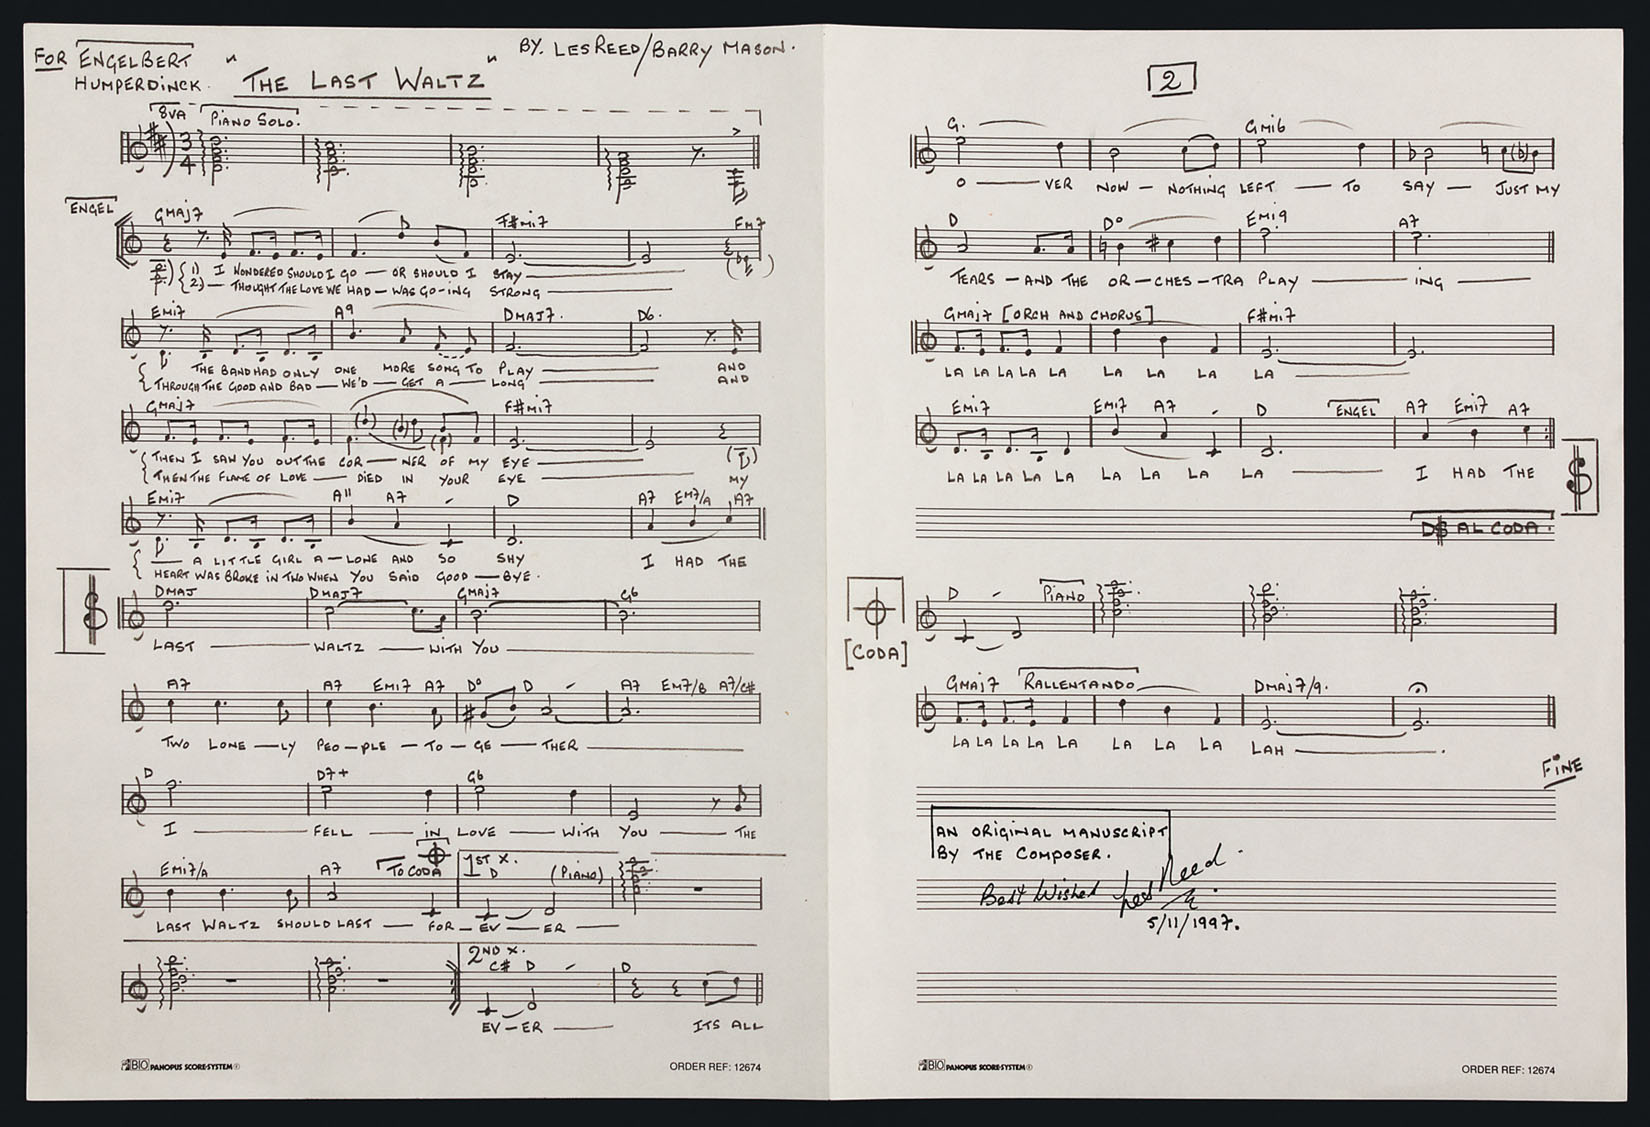 FOR ENGELBERT
HUMPERDINCK.
"THE LAST WALTZ"
BY. LES REED/BARRY MASON.
8VA PIANO SOLO.
3
4
ENGEL
GMAJ7 F#mi7 Fm7
1) I WONDERED SHOULD I GO — OR SHOULD I STAY
2) — THOUGHT THE LOVE WE HAD — WAS GO-ING STRONG
Emi7 A9 DMAJ7. D6.
THE BAND HAD ONLY ONE MORE SONG TO PLAY AND
THROUGH THE GOOD AND BAD — WE'D — GET A — LONG AND
GMAJ7 F#mi7
THEN I SAW YOU OUT THE COR — NER OF MY EYE
THEN THE FLAME OF LOVE — DIED IN YOUR EYE MY
Emi7 A11 A7 D A7 Em7/A A7
— A LITTLE GIRL A — LONE AND SO SHY I HAD THE
HEART WAS BROKE IN TWO WHEN YOU SAID GOOD — BYE.
DMAJ DMAJ7 GMAJ7 G6
LAST — WALTZ — WITH YOU
A7 A7 EMI7 A7 D° D A7 EM7/B A7/C#
TWO LONE — LY PEO — PLE — TO — GE — THER
D D7+ G6
I — FELL — IN LOVE — WITH YOU — THE
EMI7/A A7 TO CODA 1ST X. D (PIANO)
LAST WALTZ SHOULD LAST — FOR — EV — ER
2ND X.
C# D D
EV — ER ITS ALL
BIO PANOPUS SCORE-SYSTEM®
ORDER REF: 12674
2
G. GMI6
O — VER NOW — NOTHING LEFT — TO SAY — JUST MY
D D° EMI9 A7
TEARS — AND THE OR — CHES — TRA PLAY — ING
GMAJ7 [ORCH AND CHORUS] F#MI7
LA LA LA LA LA LA LA LA LA
EMI7 EMI7 A7 D ENGEL A7 EMI7 A7
LA LA LA LA LA LA LA LA LA — I HAD THE
D$ AL CODA.
D PIANO
[CODA]
GMAJ7 RALLENTANDO DMAJ7/9.
LA LA LA LA LA LA LA LA LAH
FINE
AN ORIGINAL MANUSCRIPT
BY THE COMPOSER.
Best Wishes Les Reed
5/11/1997.
BIO PANOPUS SCORE-SYSTEM®
ORDER REF: 12674